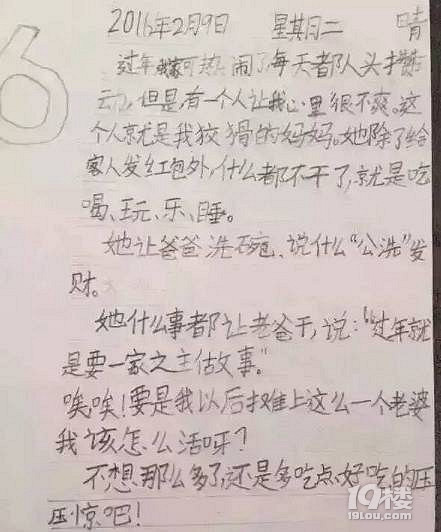 6
2016年2月9日 星期二 晴
过年我家可热闹了,每天都队头攒
动,但是有一个人让我心里很不爽。这
个人就是我狡猾的妈妈。她除了给
客人发红包外,什么都不干了,就是吃
喝、玩、乐、睡。
她让爸爸洗碗、说什么“公洗”发
财。
她什么事都让老爸干,说:“过年就
是要一家之主做事。”
唉唉!要是我以后摊上这么一个老婆
我该怎么活呀?
不想那么多了,还是多吃点好吃的压
压惊吧!
19楼
19lou.com